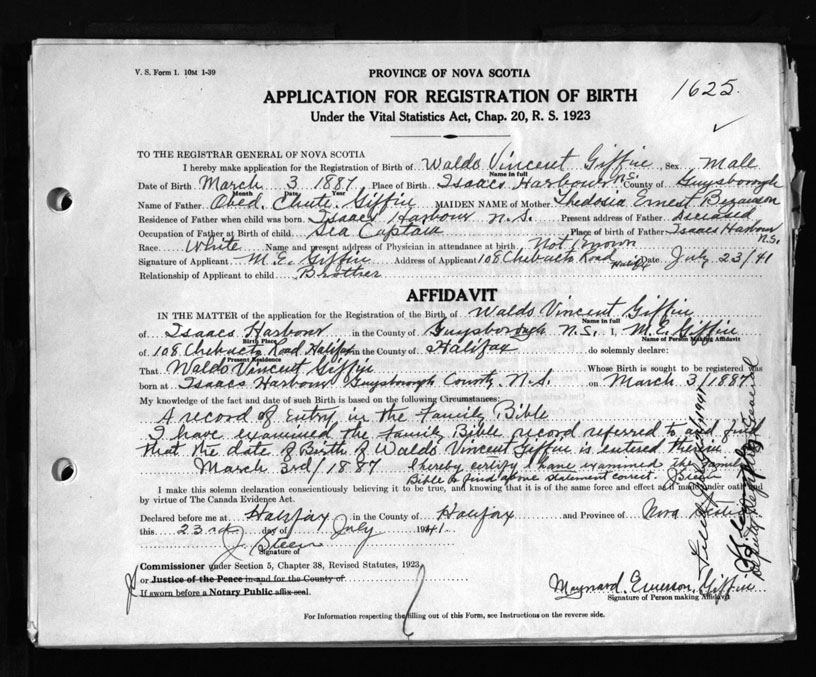 V. S. Form 1. 10M 1-39
PROVINCE OF NOVA SCOTIA
1625.
APPLICATION FOR REGISTRATION OF BIRTH
Under the Vital Statistics Act, Chap. 20, R. S. 1923
TO THE REGISTRAR GENERAL OF NOVA SCOTIA
I hereby make application for the Registration of Birth of Waldo Vincent Giffin Sex Male
Name in full
Date of Birth March 3 1887 Place of Birth Isaacs Harbour N.S. County of Guysborough
Month Date Year
Name of Father Obed Chute Giffin MAIDEN NAME of Mother Thedosia Ernest Bezanson
Residence of Father when child was born Isaacs Harbour N.S. Present address of Father deceased
Occupation of Father at Birth of child Sea Captain Place of birth of Father Isaacs Harbour N.S.
Race White Name and present address of Physician in attendance at birth Not Known
Signature of Applicant M.E. Giffin Address of Applicant 108 Chebucto Road Halifax Date July 23/41
Relationship of Applicant to child Brother
AFFIDAVIT
IN THE MATTER of the application for the Registration of Birth of Waldo Vincent Giffin
Name in full
of Isaacs Harbour in the County of Guysborough N.S. I, M.E. Giffin
Birth Place Name of Person Making Affidavit
of 108 Chebucto Road Halifax in the County of Halifax do solemnly declare:
Present Residence
That Waldo Vincent Giffin Whose Birth is sought to be registered was
born at Isaacs Harbour Guysborough County N.S. on March 3/1887
My knowledge of the fact and date of such Birth is based on the following Circumstances:
A record of Entry in the family Bible
I have examined the family Bible record referred to and find
that the date of Birth of Waldo Vincent Giffin is entered therein
March 3rd/1887 I hereby certify I have examined the family
Bible & find above statement correct. J Steen
I make this solemn declaration conscientiously believing it to be true, and knowing that it is of the same force and effect as if made under oath
by virtue of The Canada Evidence Act.
Declared before me at Halifax in the County of Halifax and Province of Nova Scotia
this 23rd day of July 1941
J. Steen
Signature of
Commissioner under Section 5, Chapter 38, Revised Statutes, 1923
or Justice of the Peace in and for the County of
If sworn before a Notary Public affix seal.
Maynard Emerson Giffin
Signature of Person making Affidavit
For Information respecting the filling out of this Form, see Instructions on the reverse side.
Deputy Registrar General